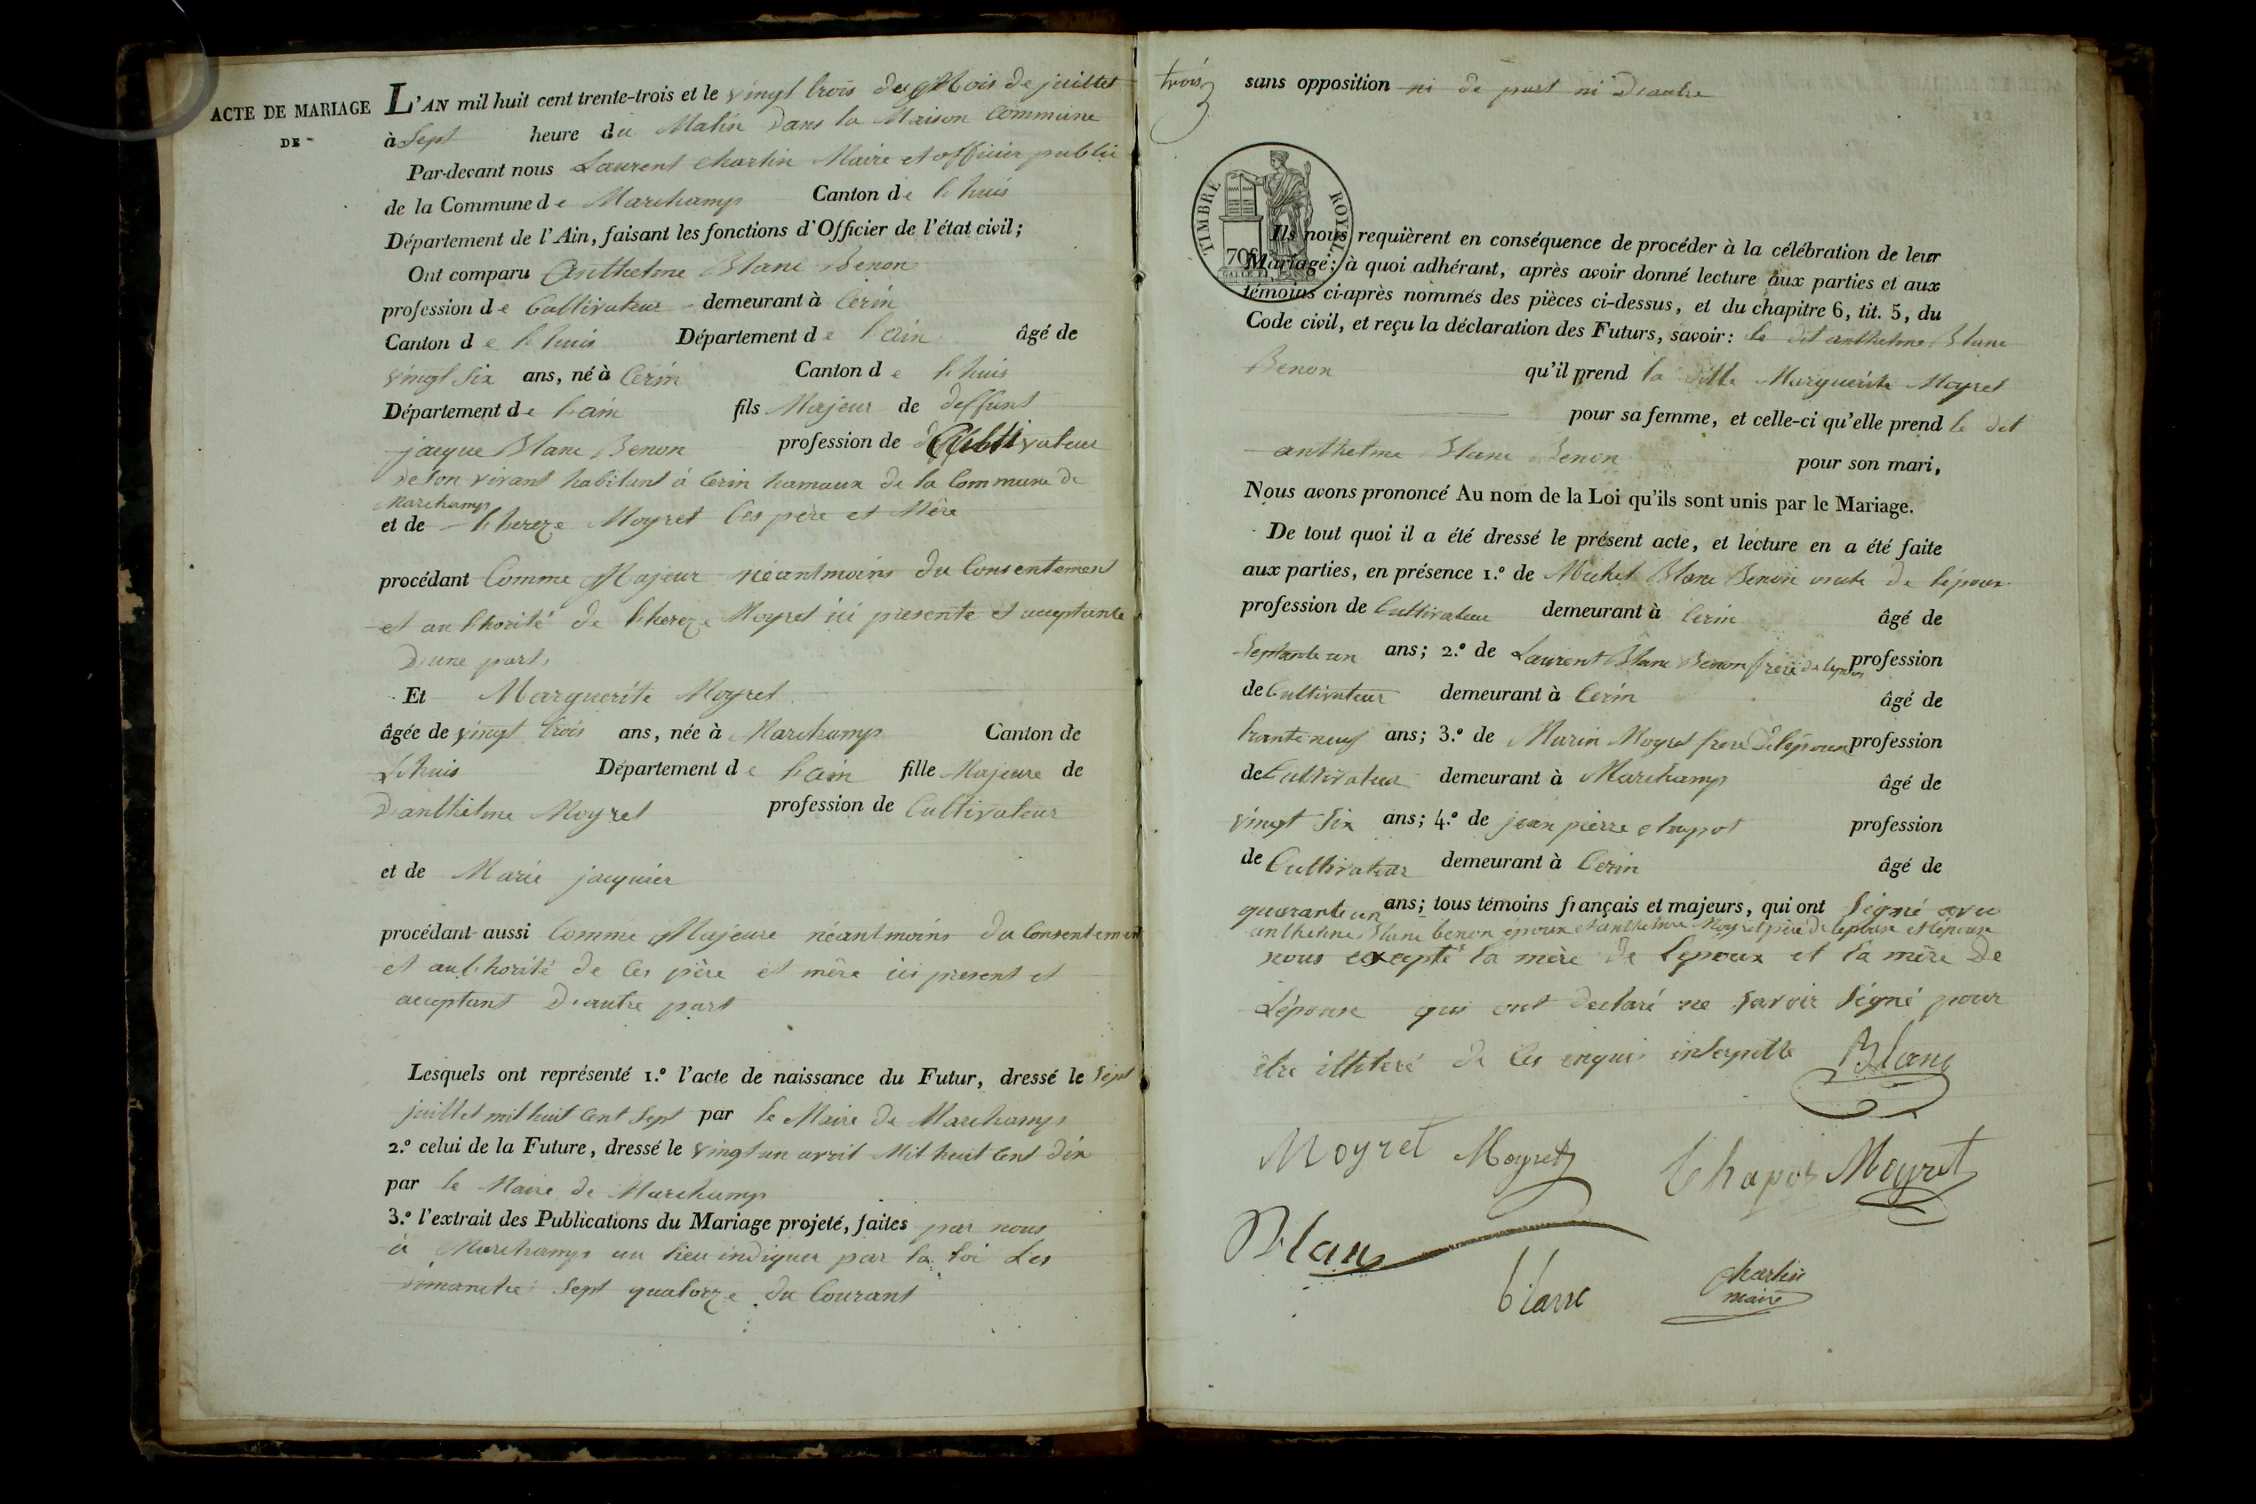 ACTE DE MARIAGE
DE
L'AN mil huit cent trente-trois et le vingt trois du Mois de juillet
à Sept heure du Matin dans la Maison Commune
Par-devant nous Laurent Charlin Maire et officier public
de la Commune de Marchamp Canton de Lhuis
Département de l'Ain, faisant les fonctions d'Officier de l'état civil;
Ont comparu Anthelme Blanc Benon
profession de Cultivateur demeurant à Cerin
Canton de Lhuis Département de Lain âgé de
vingt Six ans, né à Cerin Canton de Lhuis
Département de Lain fils Majeur de deffunt
jacque Blanc Benon profession de Cultivateur
de son vivant habitant à Cerin hamaux de la Commune de
Marchamp
et de thereze Moyret Ces père et Mère
procédant Comme Majeur néantmoins du Consentement
et authorité de thereze Moyret ici presente et acceptante
D'une part,
Et Marguerite Moyret
âgée de vingt trois ans, née à Marchamp Canton de
Lhuis Département de Lain fille Majeure de
D'anthelme Moyret profession de Cultivateur
et de Marie jacquier
procédant aussi Comme Majeure néantmoins du Consentement
et authorité de Ces père et mère ici present et
acceptant D'autre part
Lesquels ont représenté 1.º l'acte de naissance du Futur, dressé le Sept
juillet mil huit Cent Sept par le Maire de Marchamp
2.º celui de la Future, dressé le vingt un avril Mil huit Cent dix
par le Maire de Marchamp
3.º l'extrait des Publications du Mariage projeté, faites par nous
à Marchamp au lieu indiquer par la loi Les
dimanche Sept quatorze du Courant
trois
3
sans opposition ni de part ni D'autre
TIMBRE ROYAL
70c
Ils nous requièrent en conséquence de procéder à la célébration de leur
Mariage; à quoi adhérant, après avoir donné lecture aux parties et aux
témoins ci-après nommés des pièces ci-dessus, et du chapitre 6, tit. 5, du
Code civil, et reçu la déclaration des Futurs, savoir: le dit anthelme Blanc
Benon qu'il prend la ditte Marguerite Moyret
pour sa femme, et celle-ci qu'elle prend le dit
anthelme Blanc Benon pour son mari,
Nous avons prononcé Au nom de la Loi qu'ils sont unis par le Mariage.
De tout quoi il a été dressé le présent acte, et lecture en a été faite
aux parties, en présence 1.º de Michel Blanc Benon oncle de lépoux
profession de Cultivateur demeurant à Cerin âgé de
Septante un ans; 2.º de Laurent Blanc Benon frère de lepoux profession
de Cultivateur demeurant à Cerin âgé de
trante neuf ans; 3.º de Marin Moyret frere De lépouse profession
de Cultivateur demeurant à Marchamp âgé de
vingt Six ans; 4.º de jean pierre Chapot profession
de Cultivateur demeurant à Cerin âgé de
quarante un ans; tous témoins français et majeurs, qui ont Signé avec
anthelme Blanc benon époux et anthelme Moyret père de lépouse et lépouse
nous excepté la mère de lepoux et la mère De
Lépouse qui ont declaré ne Savoir Signé pour
être illiteré de Ces enquis interpellé Blanc
Moyret Moyret Chapot Moyret
Blanc
blanc
Charlin
maire